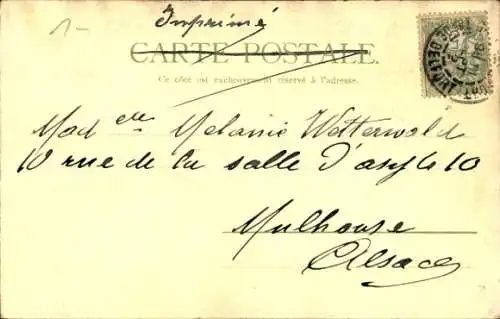 1-
Imprimé
CARTE POSTALE.
Ce côté est exclusivement réservé à l'adresse.
Mad elle Melanie Wetterwald
10 rue de la salle d'asyle 10
Mulhouse
Alsace